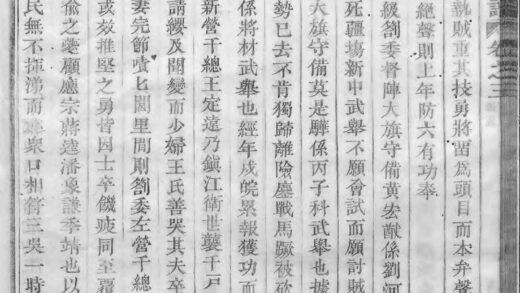 卷之三
執賊重其技勇將留為頭目而本弁聲
絕聲則上年防六有功奉
級劄委督陣大旗守備黃宏猷係劉河
死疆塲新中武舉不願會試而願討賊
大旗守備莫是驊係丙子科武舉也據
勢已去不肯獨歸離險塵戰馬蹶被砍
係將材武舉也經年戍皖累報獲功而
新營千總王定遠乃鎮江衛世襲千戶
請纓及聞變而少婦王氏善哭其夫卒
妻完節嘖匕閭里間則劄委左營千總
或效推堅之勇皆因士卒饑疲同至覆
俞之夔顧應宗蔣達潘象謙季靖也以
民無不揮涕而衆口相符三吳一時